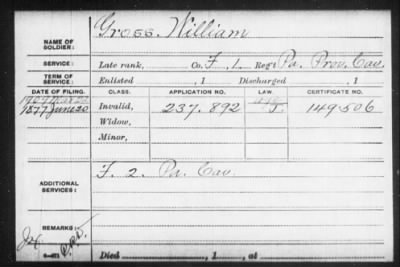 Gross William
NAME OF SOLDIER:
SERVICE: Late rank, Co. F, 1 Reg't Pa. Prov. Cav.
TERM OF SERVICE: Enlisted , 1 Discharged , 1
DATE OF FILING. CLASS. APPLICATION NO. LAW. CERTIFICATE NO.
1877 June 20 Invalid, 237.892 149.506
Widow,
Minor,
ADDITIONAL SERVICES: F. 2. Pa. Cav.
REMARKS:
Died , 1 , at